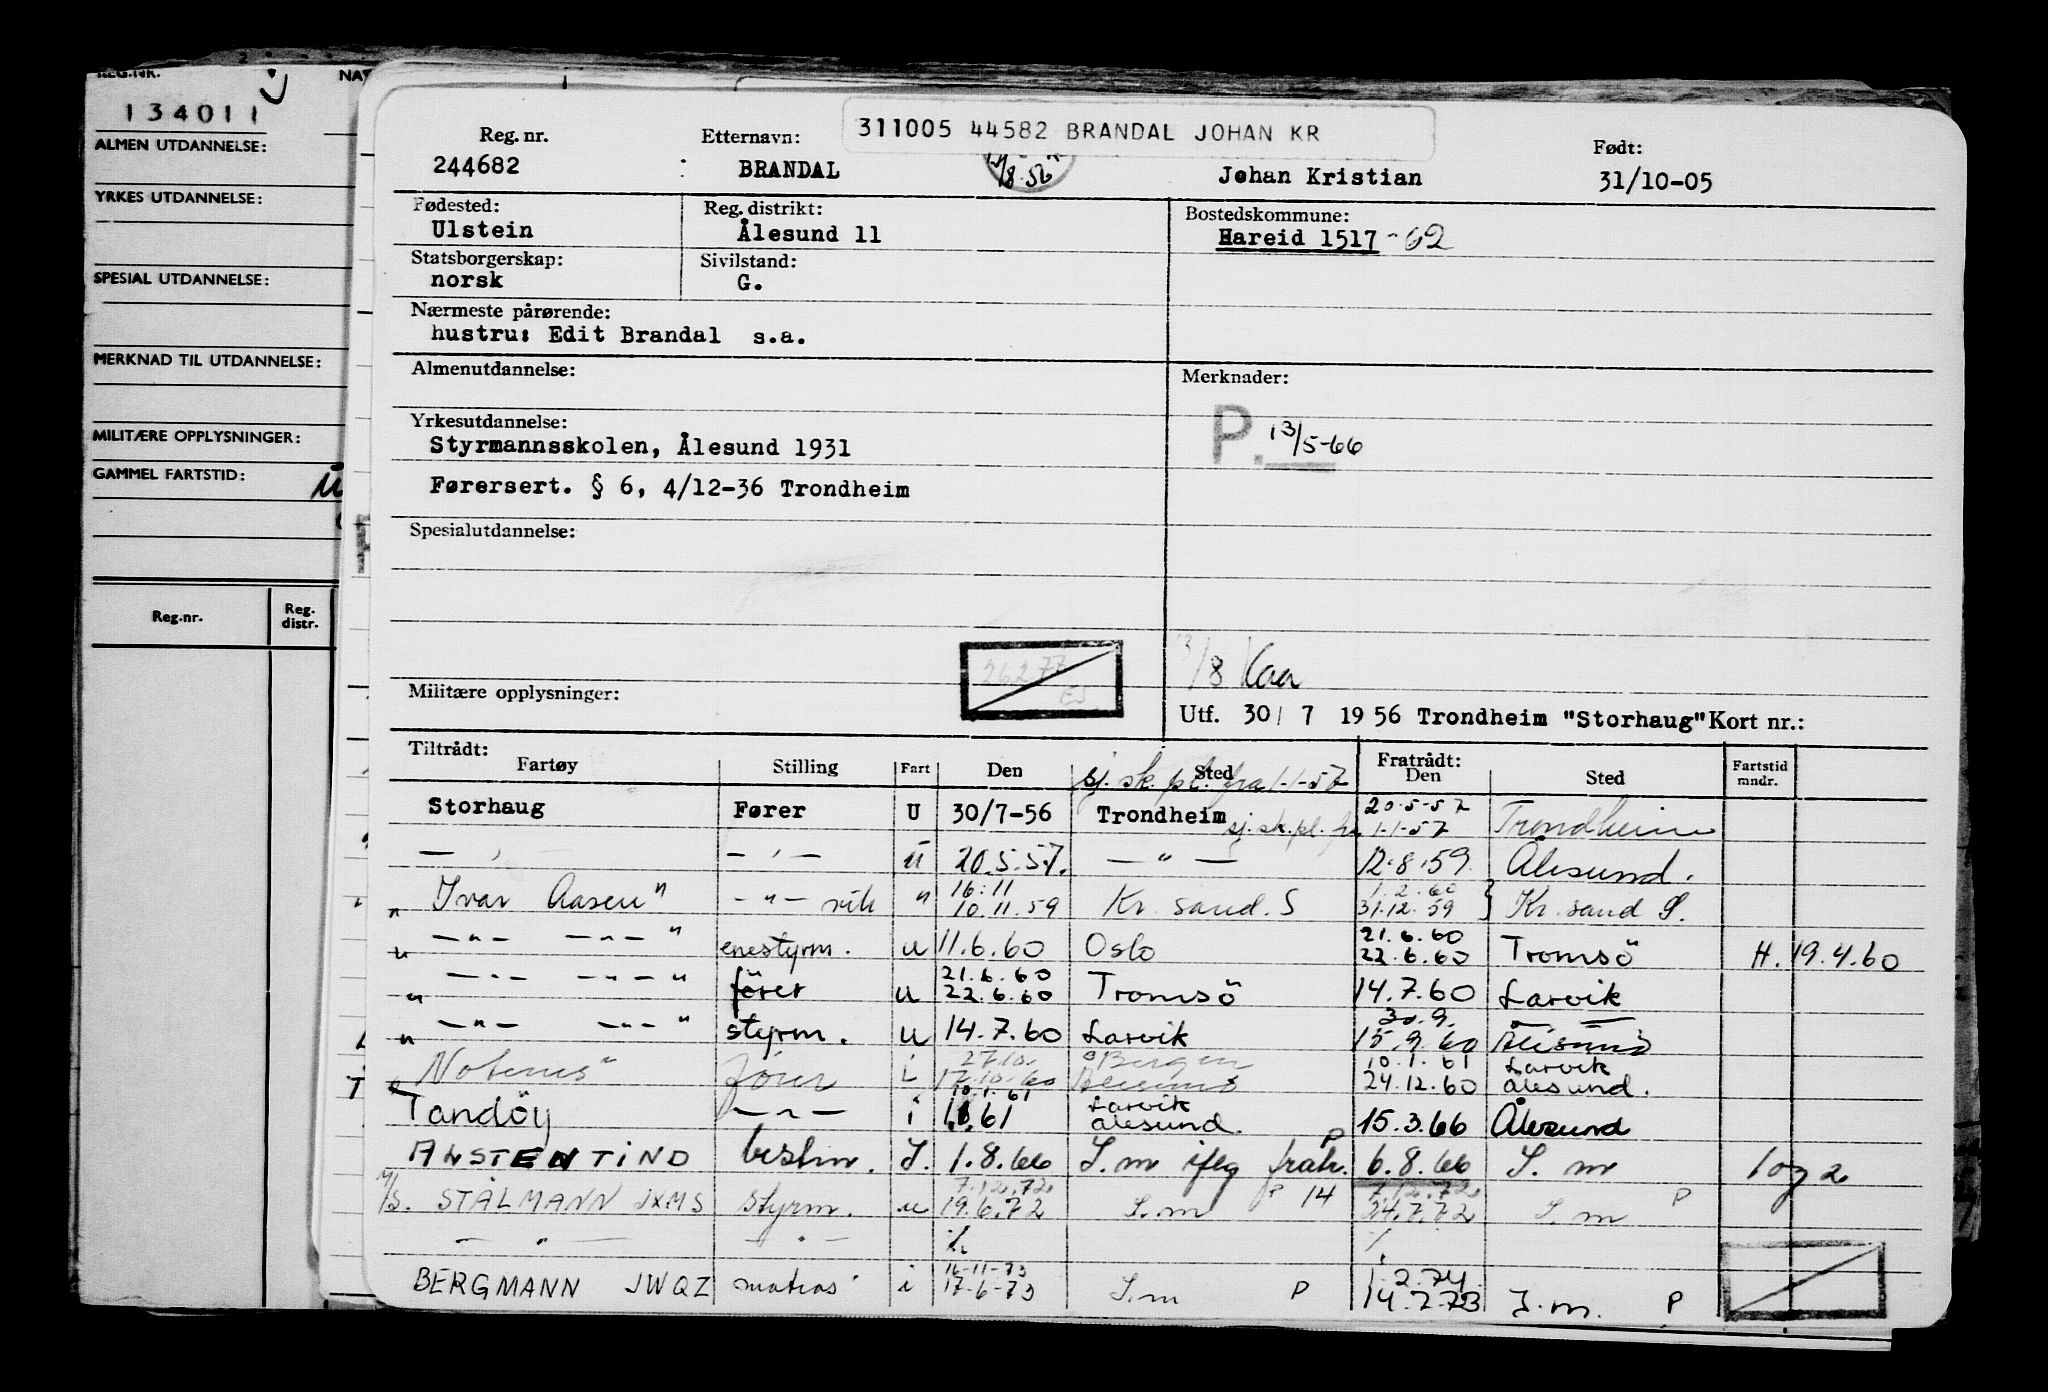 REG.NR. NA
134011
ALMEN UTDANNELSE:
YRKES UTDANNELSE:
SPESIAL UTDANNELSE:
MERKNAD TIL UTDANNELSE:
MILITÆRE OPPLYSNINGER:
GAMMEL FARTSTID:
Reg.nr. Reg. distr.
311005 44582 BRANDAL JOHAN KR
Reg. nr. Etternavn: Født:
244682 : BRANDAL 1/8.56 Johan Kristian 31/10-05
Fødested: Reg. distrikt: Bostedskommune:
Ulstein Ålesund 11 Hareid 1517 -62
Statsborgerskap: Sivilstand:
norsk G.
Nærmeste pårørende:
hustru: Edit Brandal s.a.
Almenutdannelse: Merknader:
P. 13/5-66
Yrkesutdannelse:
Styrmannsskolen, Ålesund 1931
Førersert. § 6, 4/12-36 Trondheim
Spesialutdannelse:
26277
13/8 Kaa
Militære opplysninger:
Utf. 30/ 7 1956 Trondheim "Storhaug" Kort nr.:
Tiltrådt: Fratrådt:
Fartøy Stilling Fart Den Sted Den Sted Fartstid mndr.
sj. sk. pl. fra 1-1-57
20-5-57
Storhaug Fører U 30/7-56 Trondheim sj. sk. pl. fra 1-1-57 Trondheim
— " — — " — u 20.5.57. — " — 12.8.59 Ålesund.
16.11 1.2.60
" Ivar Aasen" — " — vik " 10.11.59 Kr. sand. S 31.12.59 } Kr. sand S.
21.6.60
" —"— —"— " enestyrm. u 11.6.60 Oslo 22.6.60 Tromsö H. 19.4.60
21.6.60
" —"— —"— " förer u 22.6.60 Tromsö 14.7.60 Larvik
30.9. —
" —"— —"— " styrm. u 14.7.60 Larvik 15.9.60 Ålesund
27.10. Bergen 10.1.61 Larvik
förer i 17.10.60 Ålesund 24.12.60 Ålesund.
10.1.61 Larvik
Tandöy — " — i 1.1.61 Ålesund. P 15.3.66 Ålesund
ALSTENTIND bestm. I. 1.8.66 S.m iflg fratr. 6.8.66 S. m 1 og 2
7.12.72 7.12.72
M/S. STÅLMANN JXMS styrm. u 19.6.72 S.m P 14 24.7.72 S.m P
— " — — " — %
16-11-73 1.2.74
BERGMANN JWQZ matros i 17-6-73 S.m P 14.7.73 S.m. P